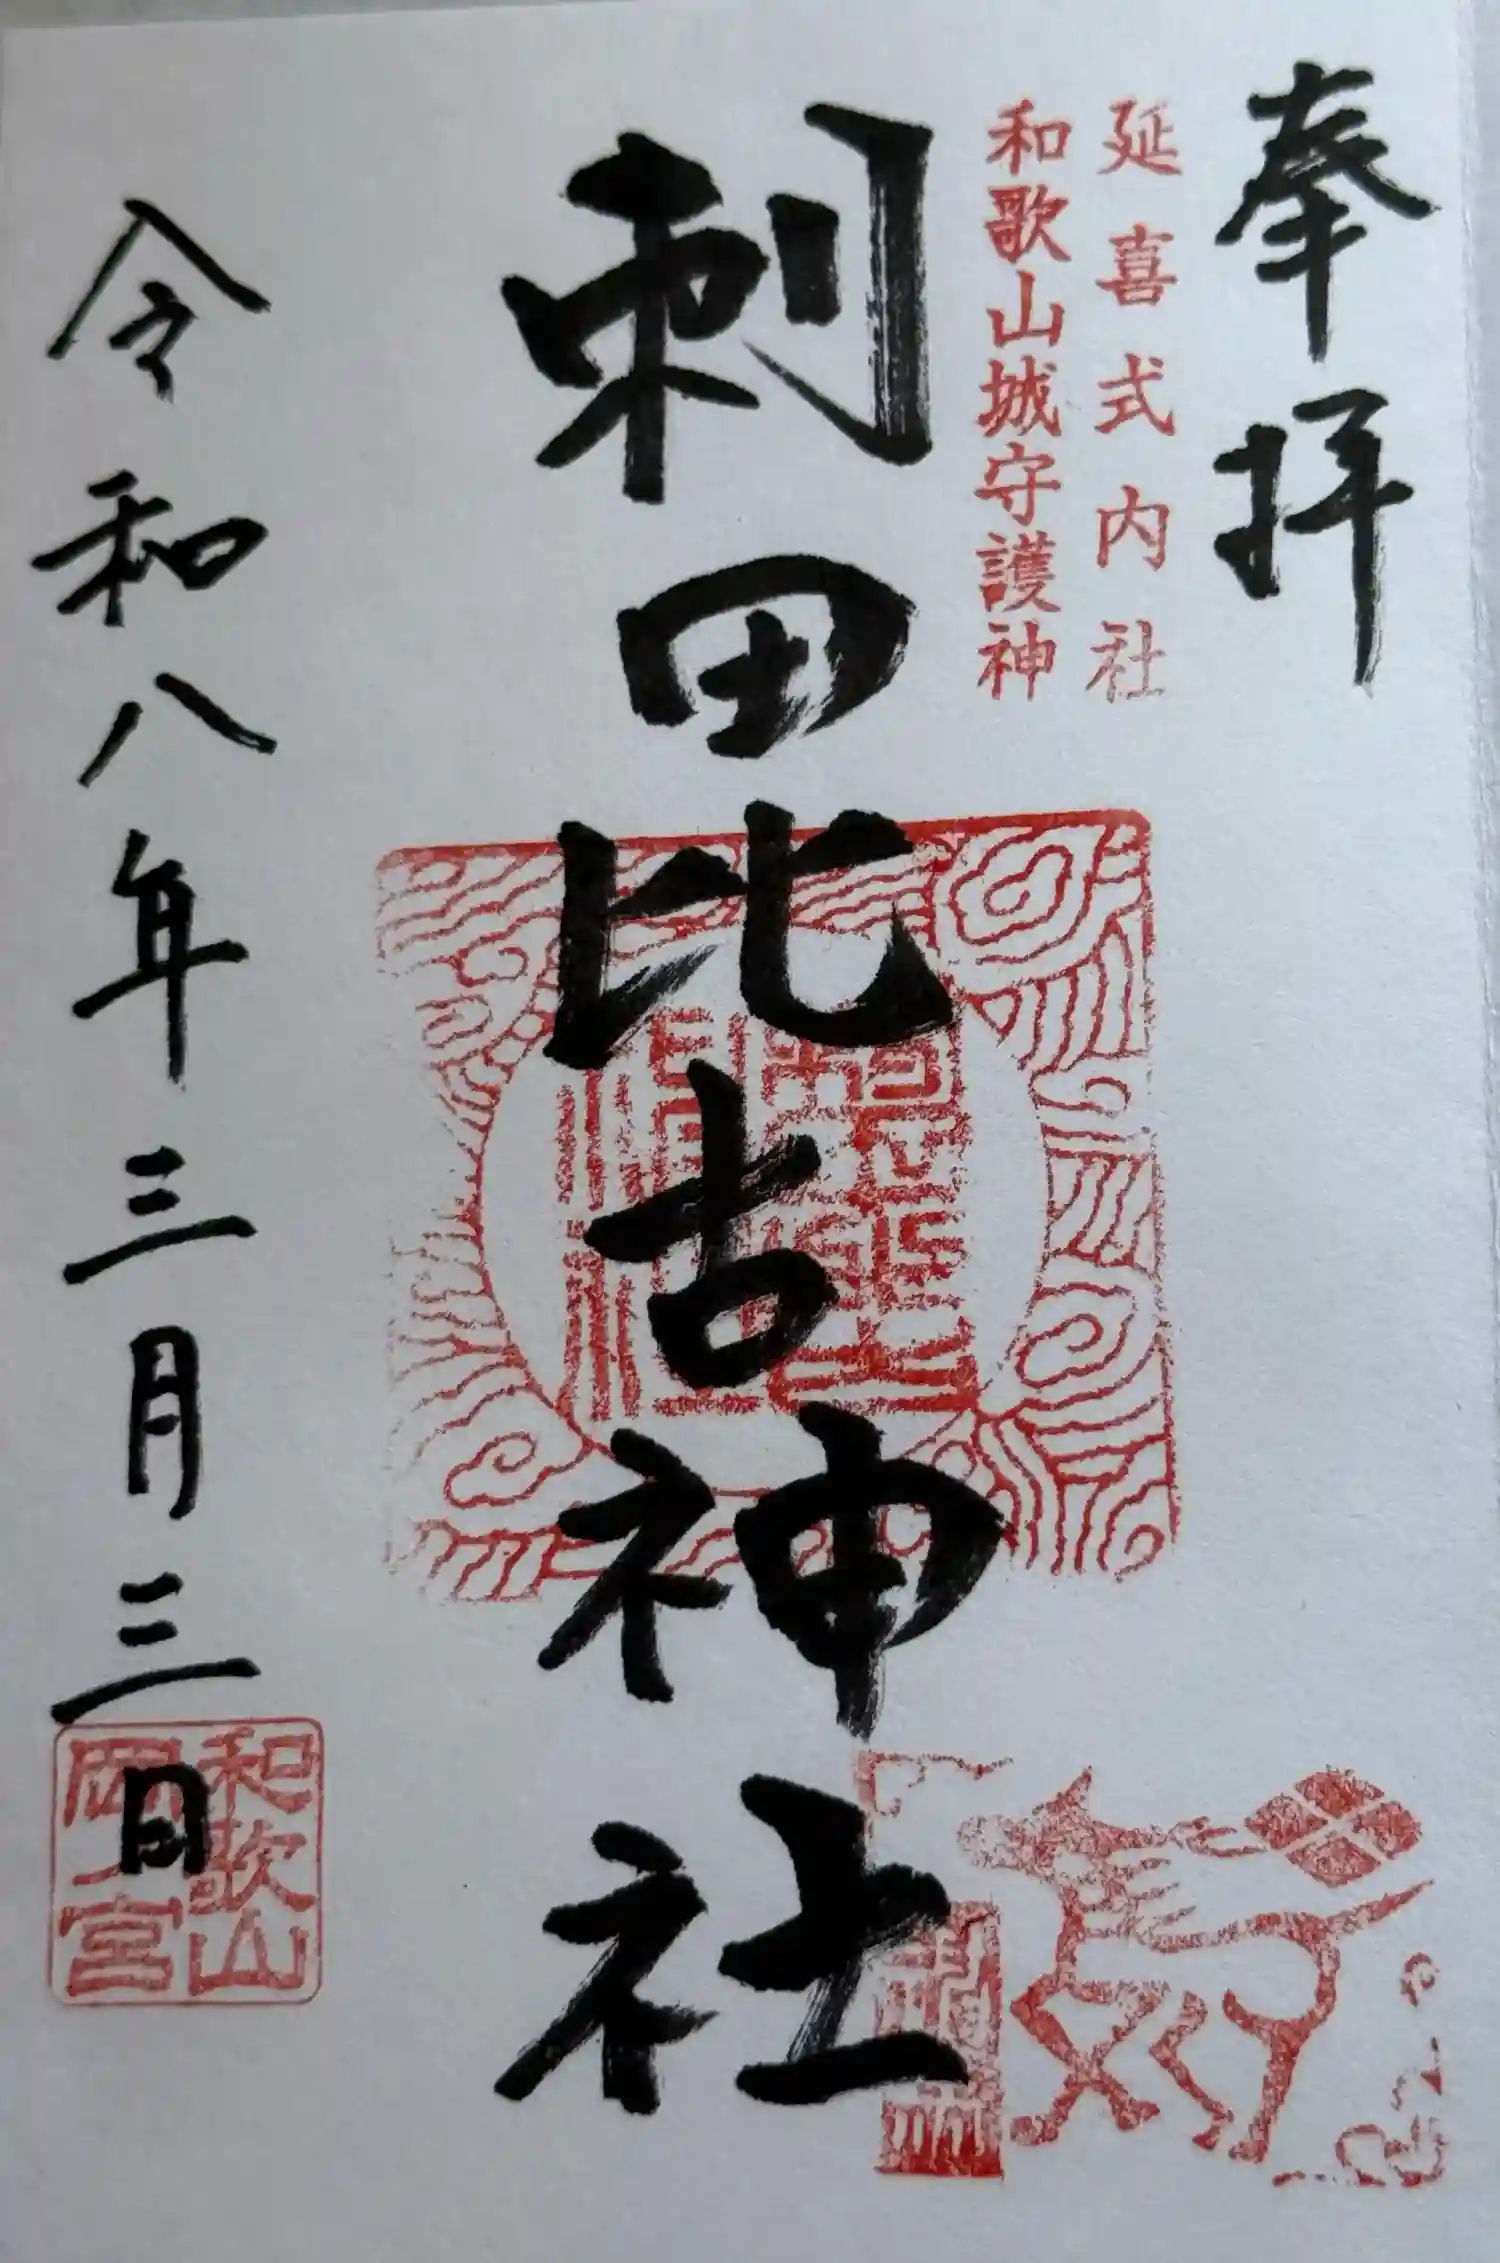 奉拝
延喜式内社
和歌山城守護神
刺田比古神社
令和八年三月三日
和歌山
岡の宮